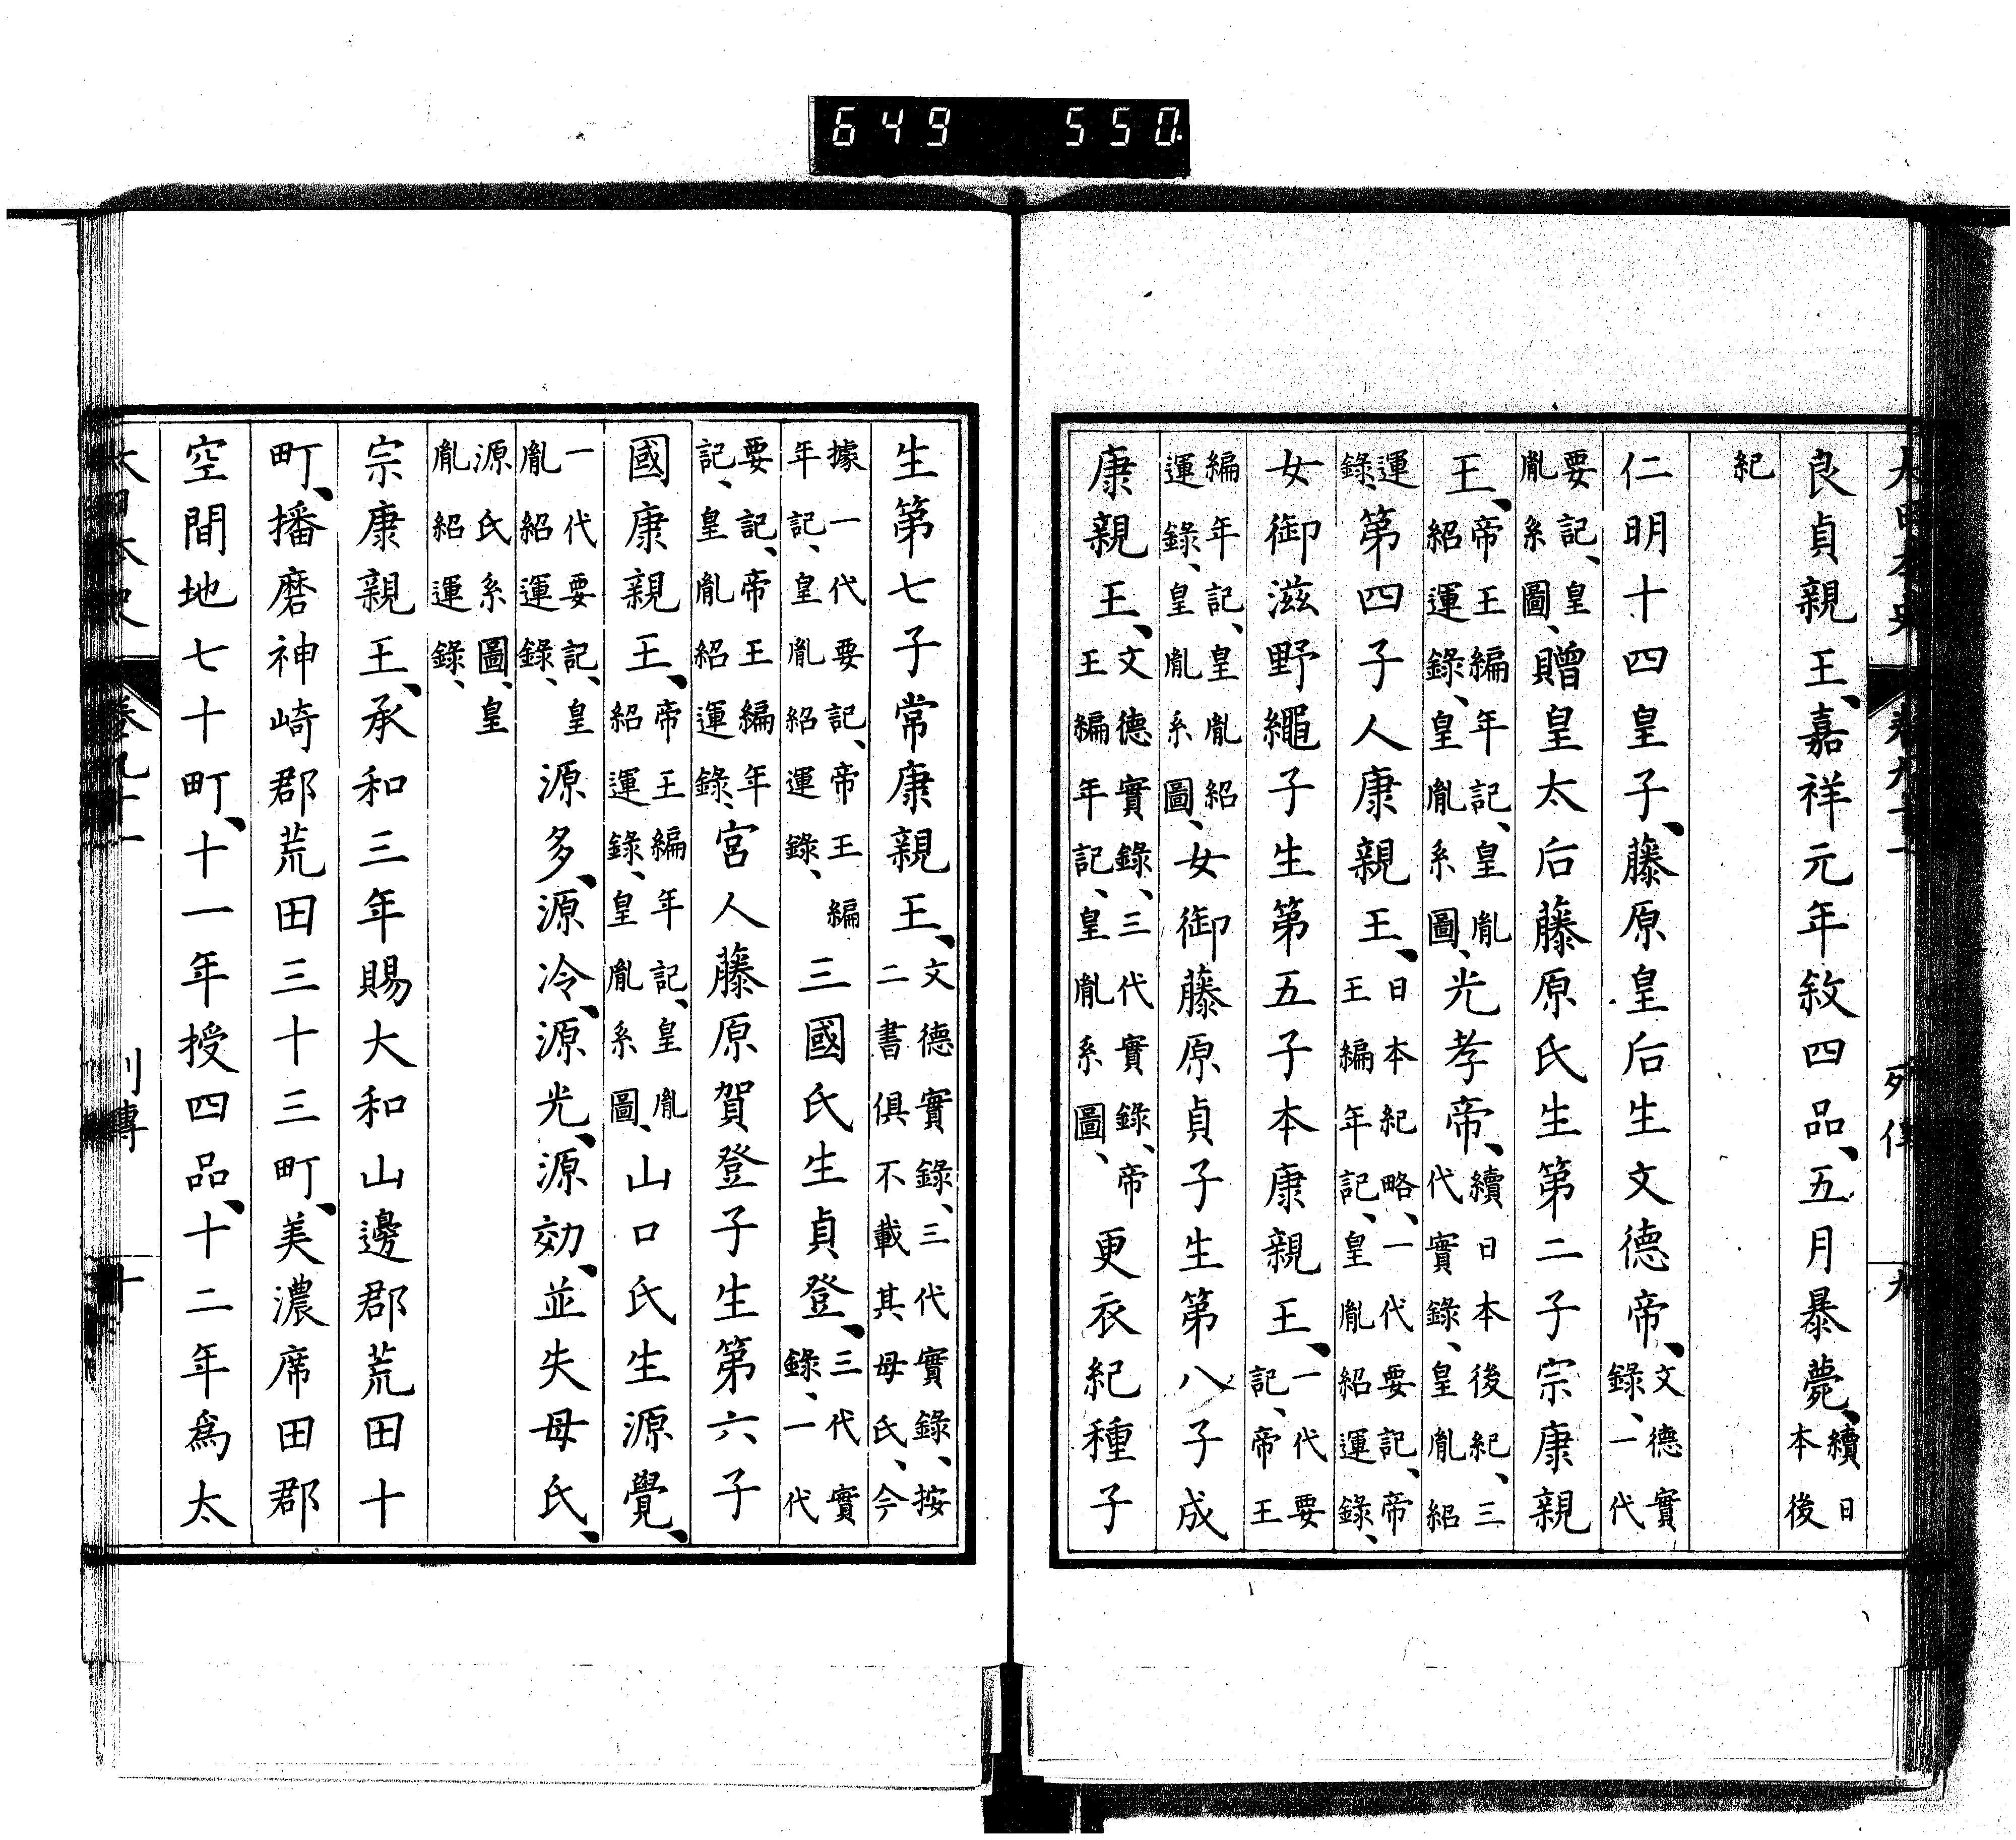 大日本史 卷九十一 列傳 九
良貞親王、嘉祥元年敘四品、五月暴薨、續日本後
紀
仁明十四皇子、藤原皇后生文德帝、文德實錄、一代
要記、皇胤系圖、贈皇太后藤原氏生第二子宗康親
王、帝王編年記、皇胤紹運錄、皇胤系圖、光孝帝、續日本後紀、三代實錄、皇胤紹
運錄、第四子人康親王、日本紀略、一代要記、帝王編年記、皇胤紹運錄、
女御滋野繩子生第五子本康親王、一代要記、帝王
編年記、皇胤紹運錄、皇胤系圖、女御藤原貞子生第八子成
康親王、文德實錄、三代實錄、帝王編年記、皇胤系圖、更衣紀種子
生第七子常康親王、文德實錄、三代實錄、按二書俱不載其母氏、今
據一代要記、帝王編年記、皇胤紹運錄、三國氏生貞登、三代實錄、一代
要記、帝王編年記、皇胤紹運錄、宮人藤原賀登子生第六子
國康親王、帝王編年記、皇胤紹運錄、皇胤系圖、山口氏生源覺、
一代要記、皇胤紹運錄、源多、源冷、源光、源効、並失母氏、
源氏系圖、皇胤紹運錄、
宗康親王、承和三年賜大和山邊郡荒田十
町、播磨神崎郡荒田三十三町、美濃席田郡
空閒地七十町、十一年授四品、十二年爲太
大日本史 卷九十一 列傳 十
649 550